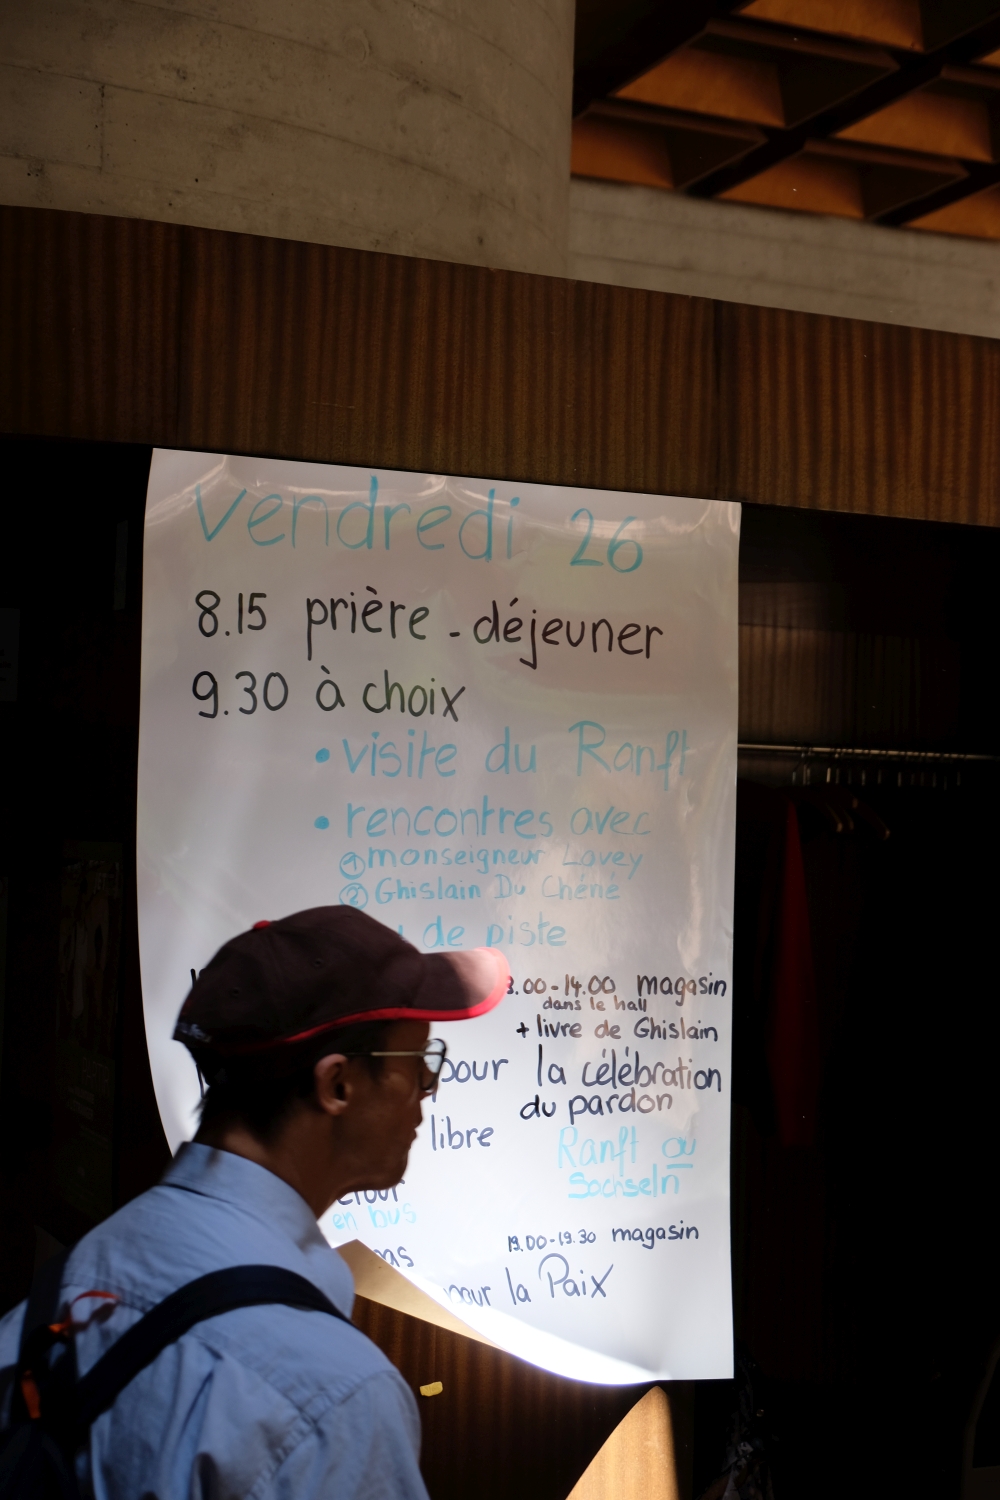 vendredi 26
8.15 prière - déjeuner
9.30 à choix
• visite du Ranft
• rencontres avec
① monseigneur Lovey
② Ghislain Du Chéné
de piste
.00-14.00 magasin
dans le hall
+ livre de Ghislain
pour la célébration
du pardon
libre
Ranft ou
Sachseln
en bus
19.00-19.30 magasin
pour la Paix